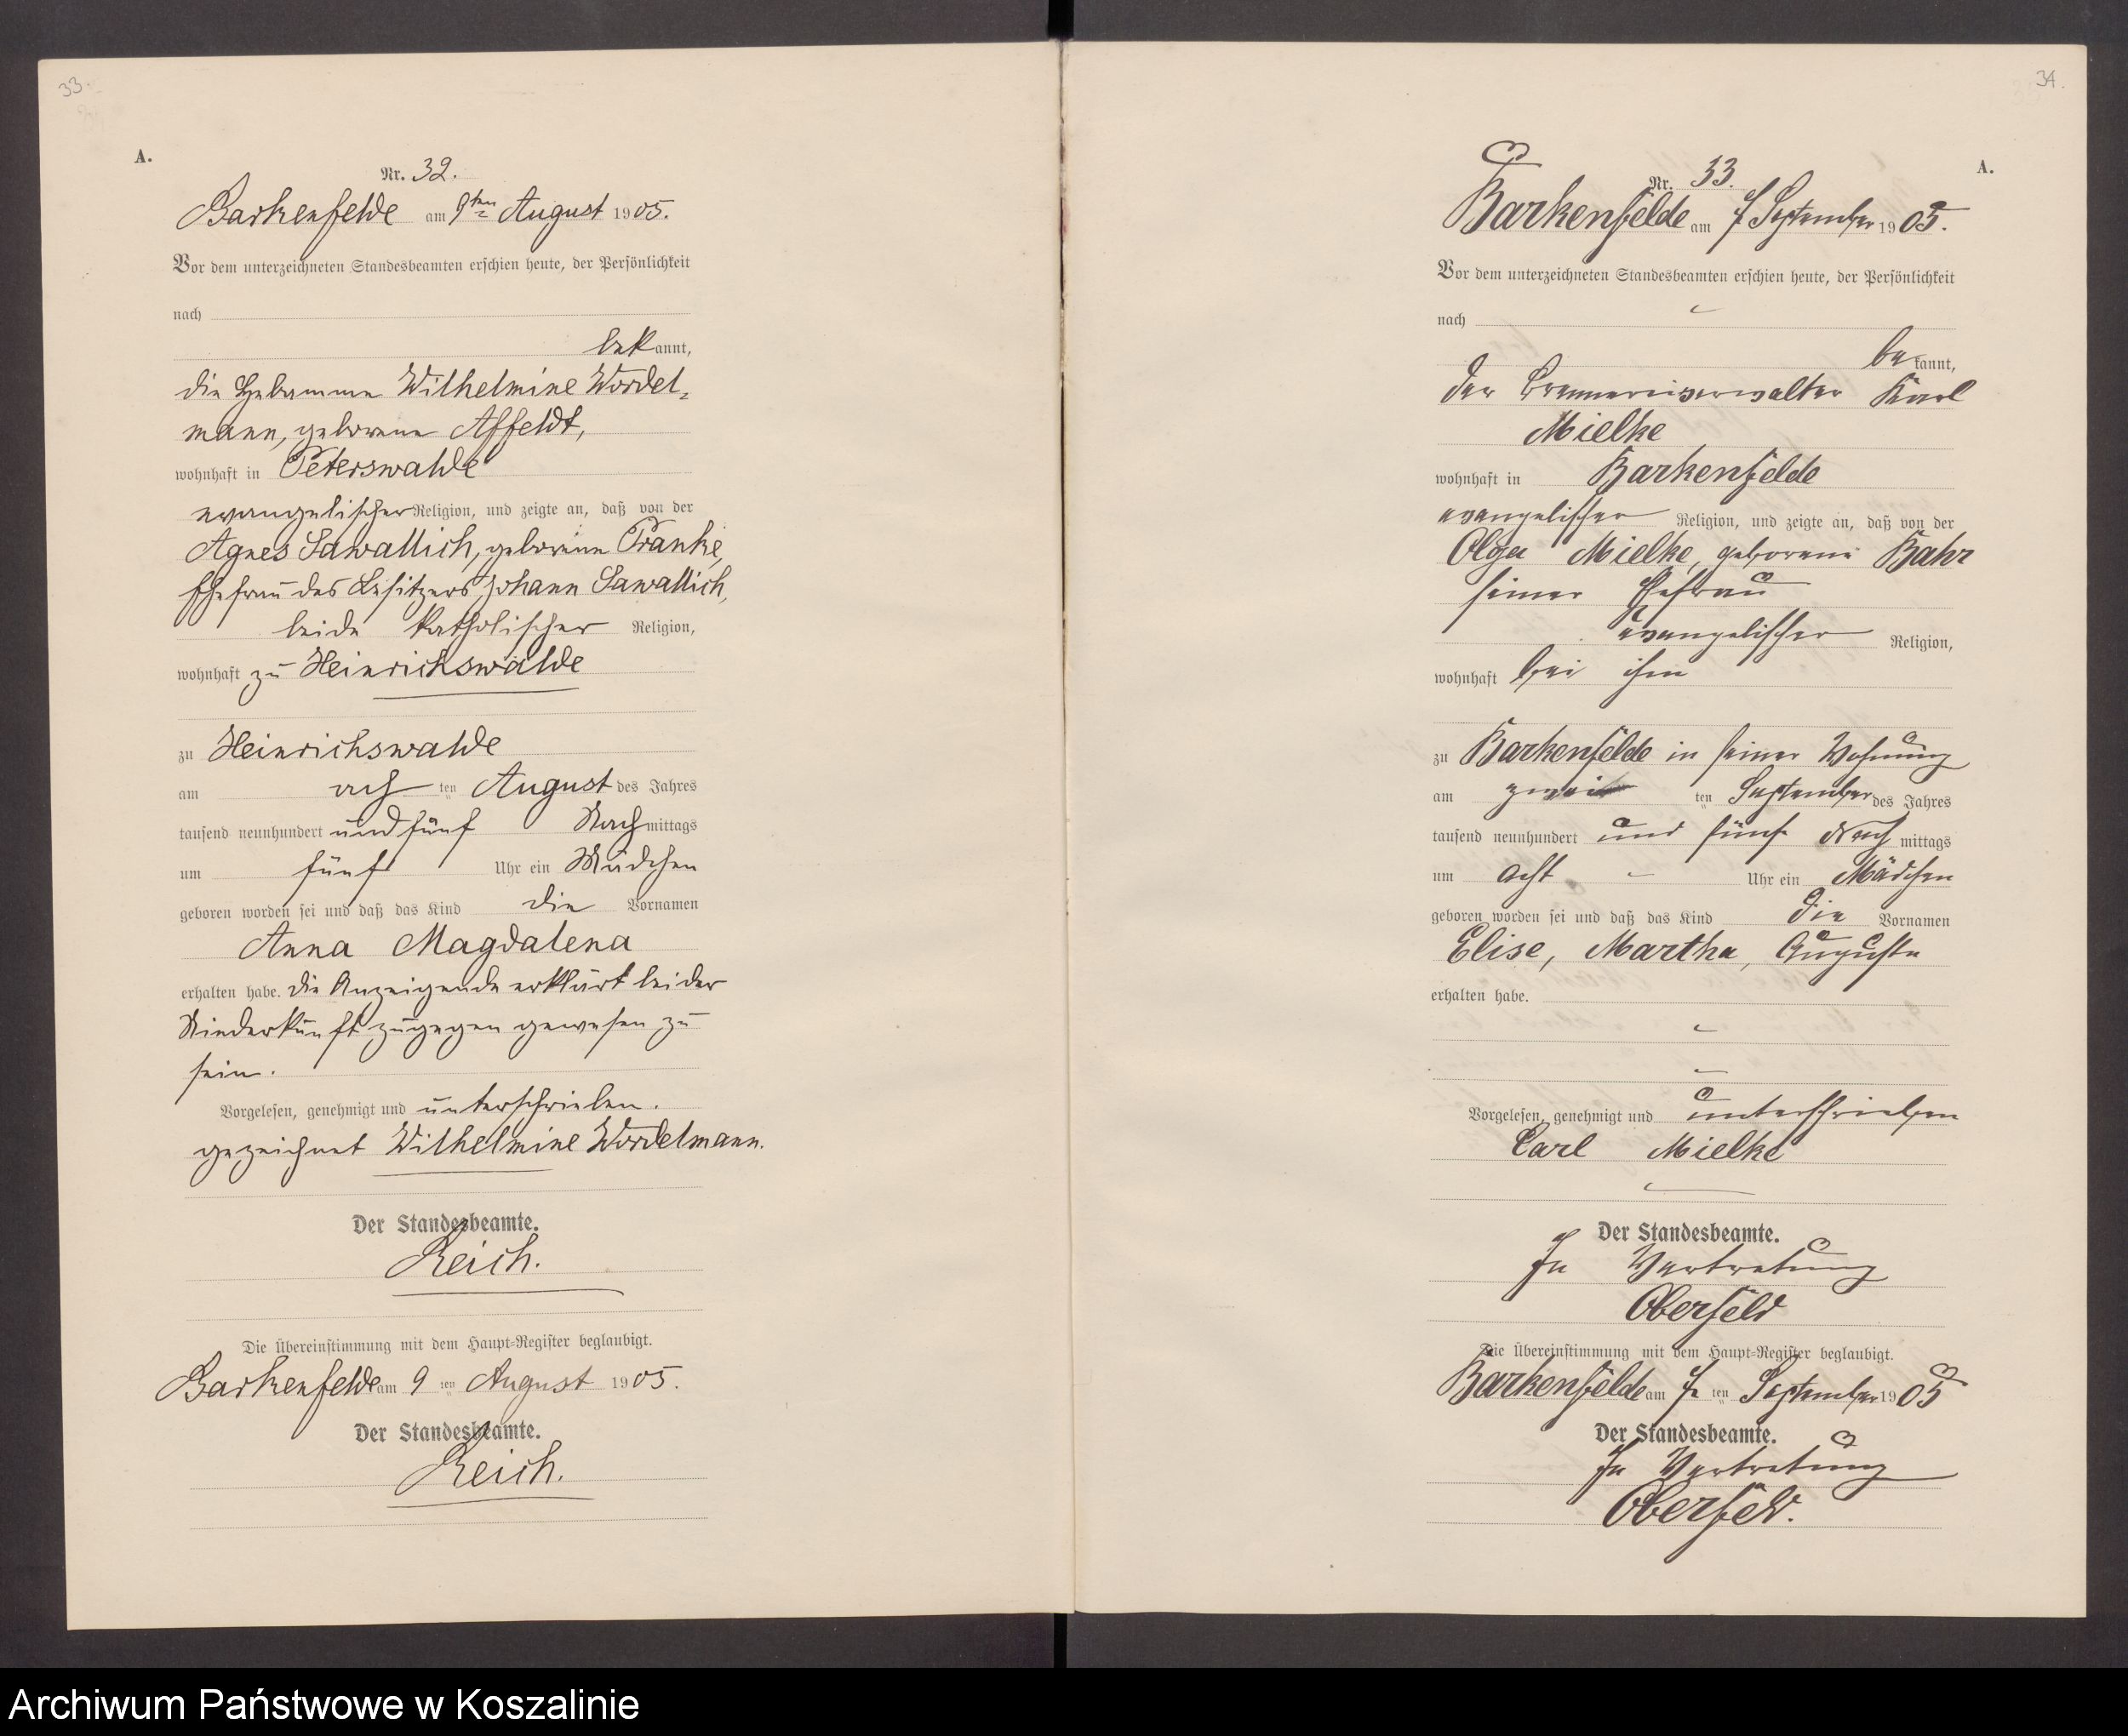 33.
A.
Nr. 32.
Barkenfelde am 9ten August 1905.
Vor dem unterzeichneten Standesbeamten erschien heute, der Persönlichkeit
nach
bekannt,
die Hebamme Wilhelmine Wordel-
mann, geborene Affeldt,
wohnhaft in Peterswalde
evangelischer Religion, und zeigte an, daß von der
Agnes Sawallich, geborene Pranke,
Ehefrau des Besitzers Johann Sawallich,
beide katholischer Religion,
wohnhaft zu Heinrichswalde
zu Heinrichswalde
am achten August des Jahres
tausend neunhundert und fünf Nachmittags
um fünf Uhr ein Mädchen
geboren worden sei und daß das Kind die Vornamen
Anna Magdalena
erhalten habe. Die Anzeigende erklärt bei der
Niederkunft zugegen gewesen zu
sein.
Vorgelesen, genehmigt und unterschrieben.
gezeichnet Wilhelmine Wordelmann.
Der Standesbeamte.
Reich.
Die Übereinstimmung mit dem Haupt-Register beglaubigt.
Barkenfelde am 9 ten August 1905.
Der Standesbeamte.
Reich.
34.
A.
Nr. 33.
Barkenfelde am 7 September 1905.
Vor dem unterzeichneten Standesbeamten erschien heute, der Persönlichkeit
nach
bekannt,
der Brennereiverwalter Karl
Mielke
wohnhaft in Barkenfelde
evangelischer Religion, und zeigte an, daß von der
Olga Mielke, geborene Bahr
seiner Ehefrau
evangelischer Religion,
wohnhaft bei ihm
zu Barkenfelde in seiner Wohnung
am zwei ten September des Jahres
tausend neunhundert und fünf Nachmittags
um acht Uhr ein Mädchen
geboren worden sei und daß das Kind die Vornamen
Elise, Martha, Auguste
erhalten habe.
Vorgelesen, genehmigt und unterschrieben
Carl Mielke
Der Standesbeamte.
In Vertretung
Oberfeld
Die Übereinstimmung mit dem Haupt-Register beglaubigt.
Barkenfelde am 7 ten September 1905
Der Standesbeamte.
In Vertretung
Oberfeld.
Archiwum Państwowe w Koszalinie